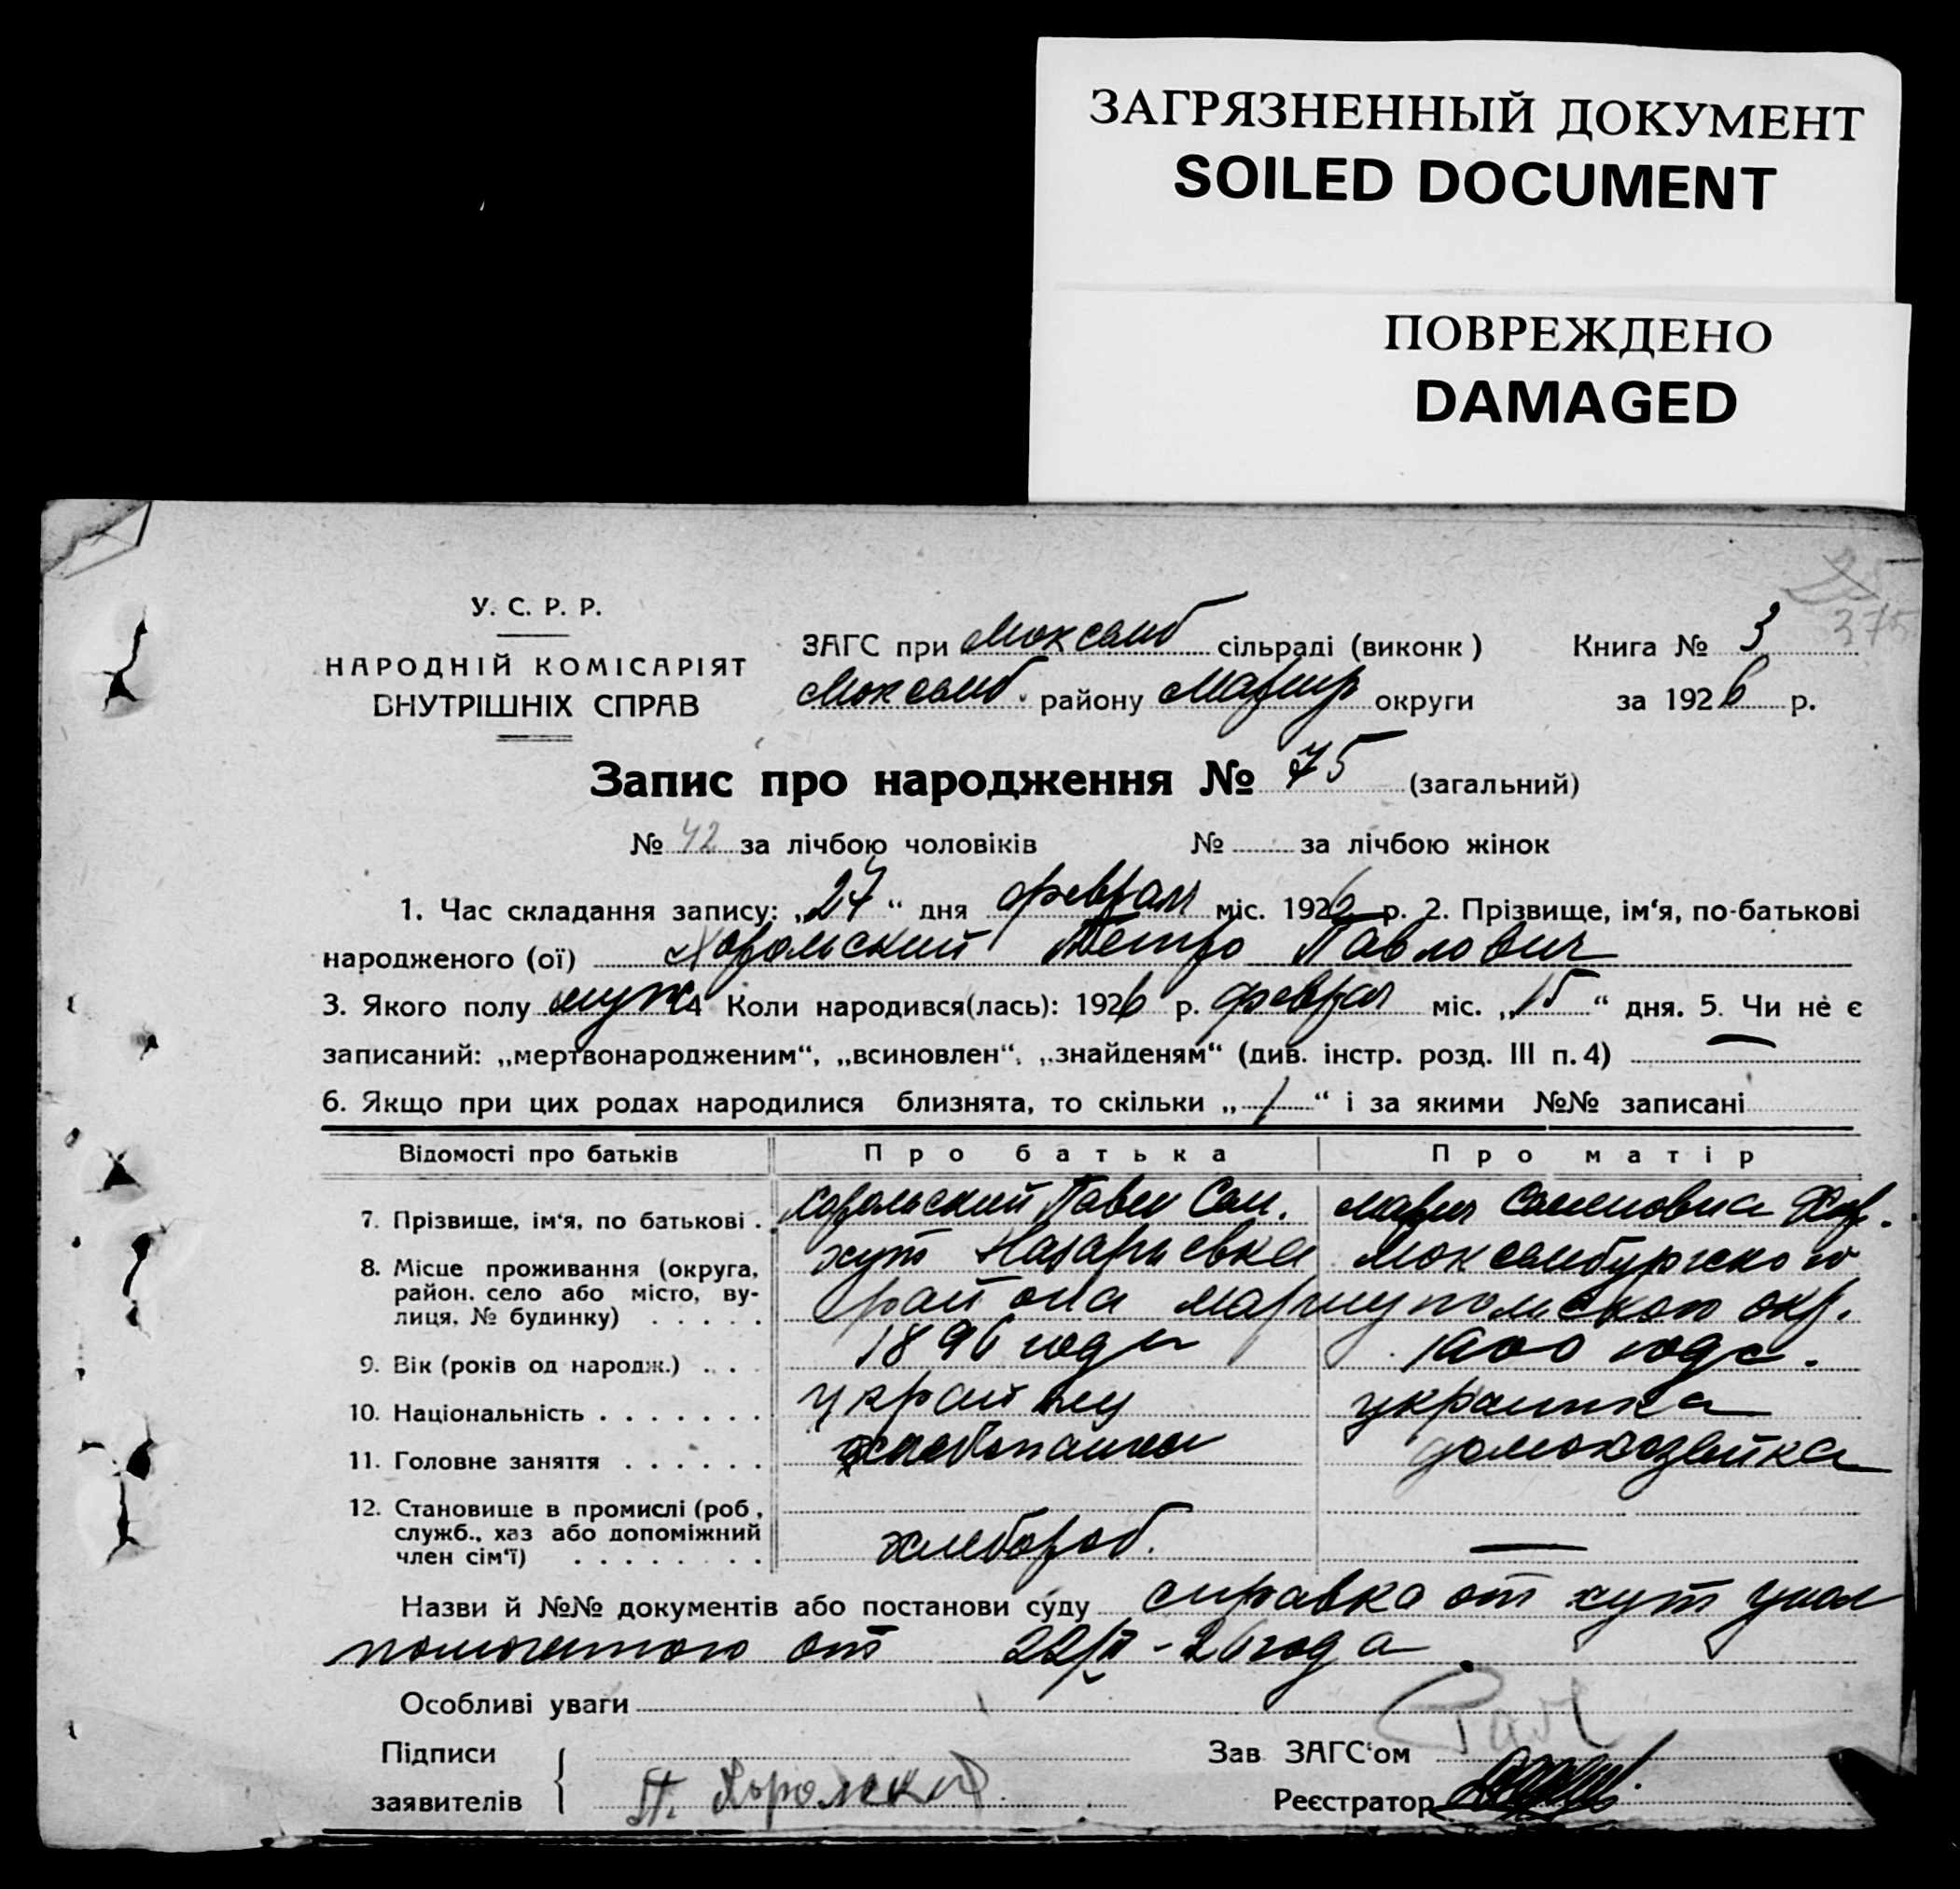 ЗАГРЯЗНЕННЫЙ ДОКУМЕНТ
SOILED DOCUMENT
ПОВРЕЖДЕНО
DAMAGED
375
У. С. Р. Р.
НАРОДНІЙ КОМІСАРІЯТ
ВНУТРІШНІХ СПРАВ
ЗАГС при Люксемб сільраді (виконк) Книга № 3
Люксемб. району Маріуп округи за 1926 р.
Запис про народження № 75 (загальний)
№ 42 за лічбою чоловіків № за лічбою жінок
1. Час складання запису: „27“ дня февраля міс. 1926 р. 2. Прізвище, ім‘я, по-батькові
народженого (ої) Хорольский Петро Павлович
3. Якого полу муж 4 Коли народився(лась): 1926 р. февраля міс. „15“ дня. 5. Чи не є
записаний: „мертвонародженим“, „всиновлен“, „знайденям“ (див. інстр. розд. III п. 4) —
6. Якщо при цих родах народилися близнята, то скільки „/“ і за якими №№ записані
Відомості про батьків Про батька Про матір
7. Прізвище, ім‘я, по батькові . Хорольский Павел Сем. Мария Семеновна Хор.
8. Місце проживання (округа, район, село або місто, вулиця, № будинку) . . . . . хут Назарьевка Люксембургского
района Мариупольского окр.
9. Вік (років од народж.) . . . 1896 года 1900 года.
10. Національність . . . . . . . украинец украинка
11. Головне заняття . . . . . . домохозяйка
12. Становище в промислі (роб, служб., хаз або допоміжний член сім‘ї) . . . . . . . . хлебороб. —
Назви й №№ документів або постанови суду справка от хут упол
номоченого от 22/II-26 года.
Особливі уваги
Підписи
заявителів
П. Хорольский
Зав ЗАГС‘ом
Реєстратор